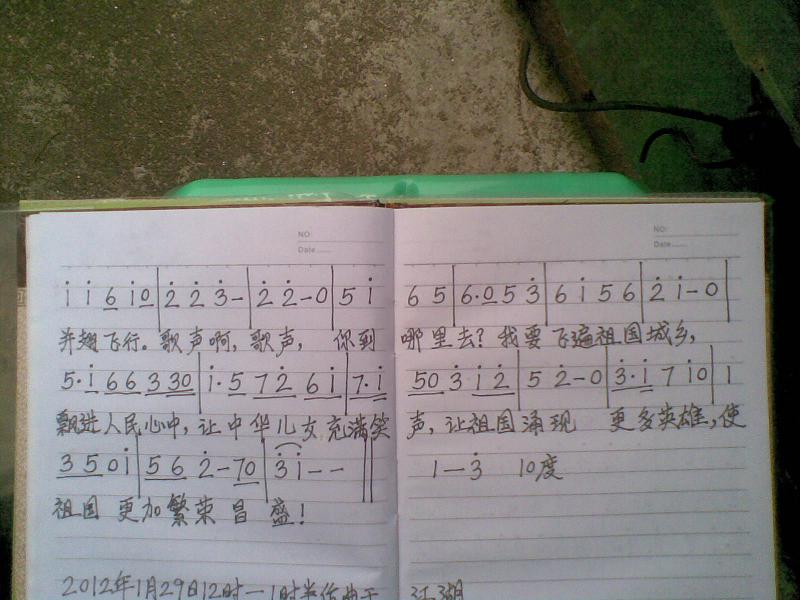 NO: NO:
Date Date
1̇ 1̇ 6 1̇0 | 2̇ 2̇ 3̇ - | 2̇ 2̇ - 0 | 5 1̇ 6 5 | 6·0 5 3̇ | 6 1̇ 5 6 | 2̇ 1̇ - 0 |
并翅飞行。歌声啊,歌声, 你到哪里去?我要飞遍祖国城乡,
5·1̇ 66 3 30 | 1̇·5 72̇ 61̇ | 7·1̇ 50 3̇ 1̇2̇ | 5 2̇ - 0 | 3̇·1̇ 7 1̇0 | 1
飘进人民心中,让中华儿女充满笑声,让祖国涌现 更多英雄,使
35 01̇ | 56 2̇ - 70 | 3̇ 1̇ - - || 1 — 3̇ 10度
祖国 更加繁荣昌 盛!
2012年1月29日12时—1时半作曲于江湖